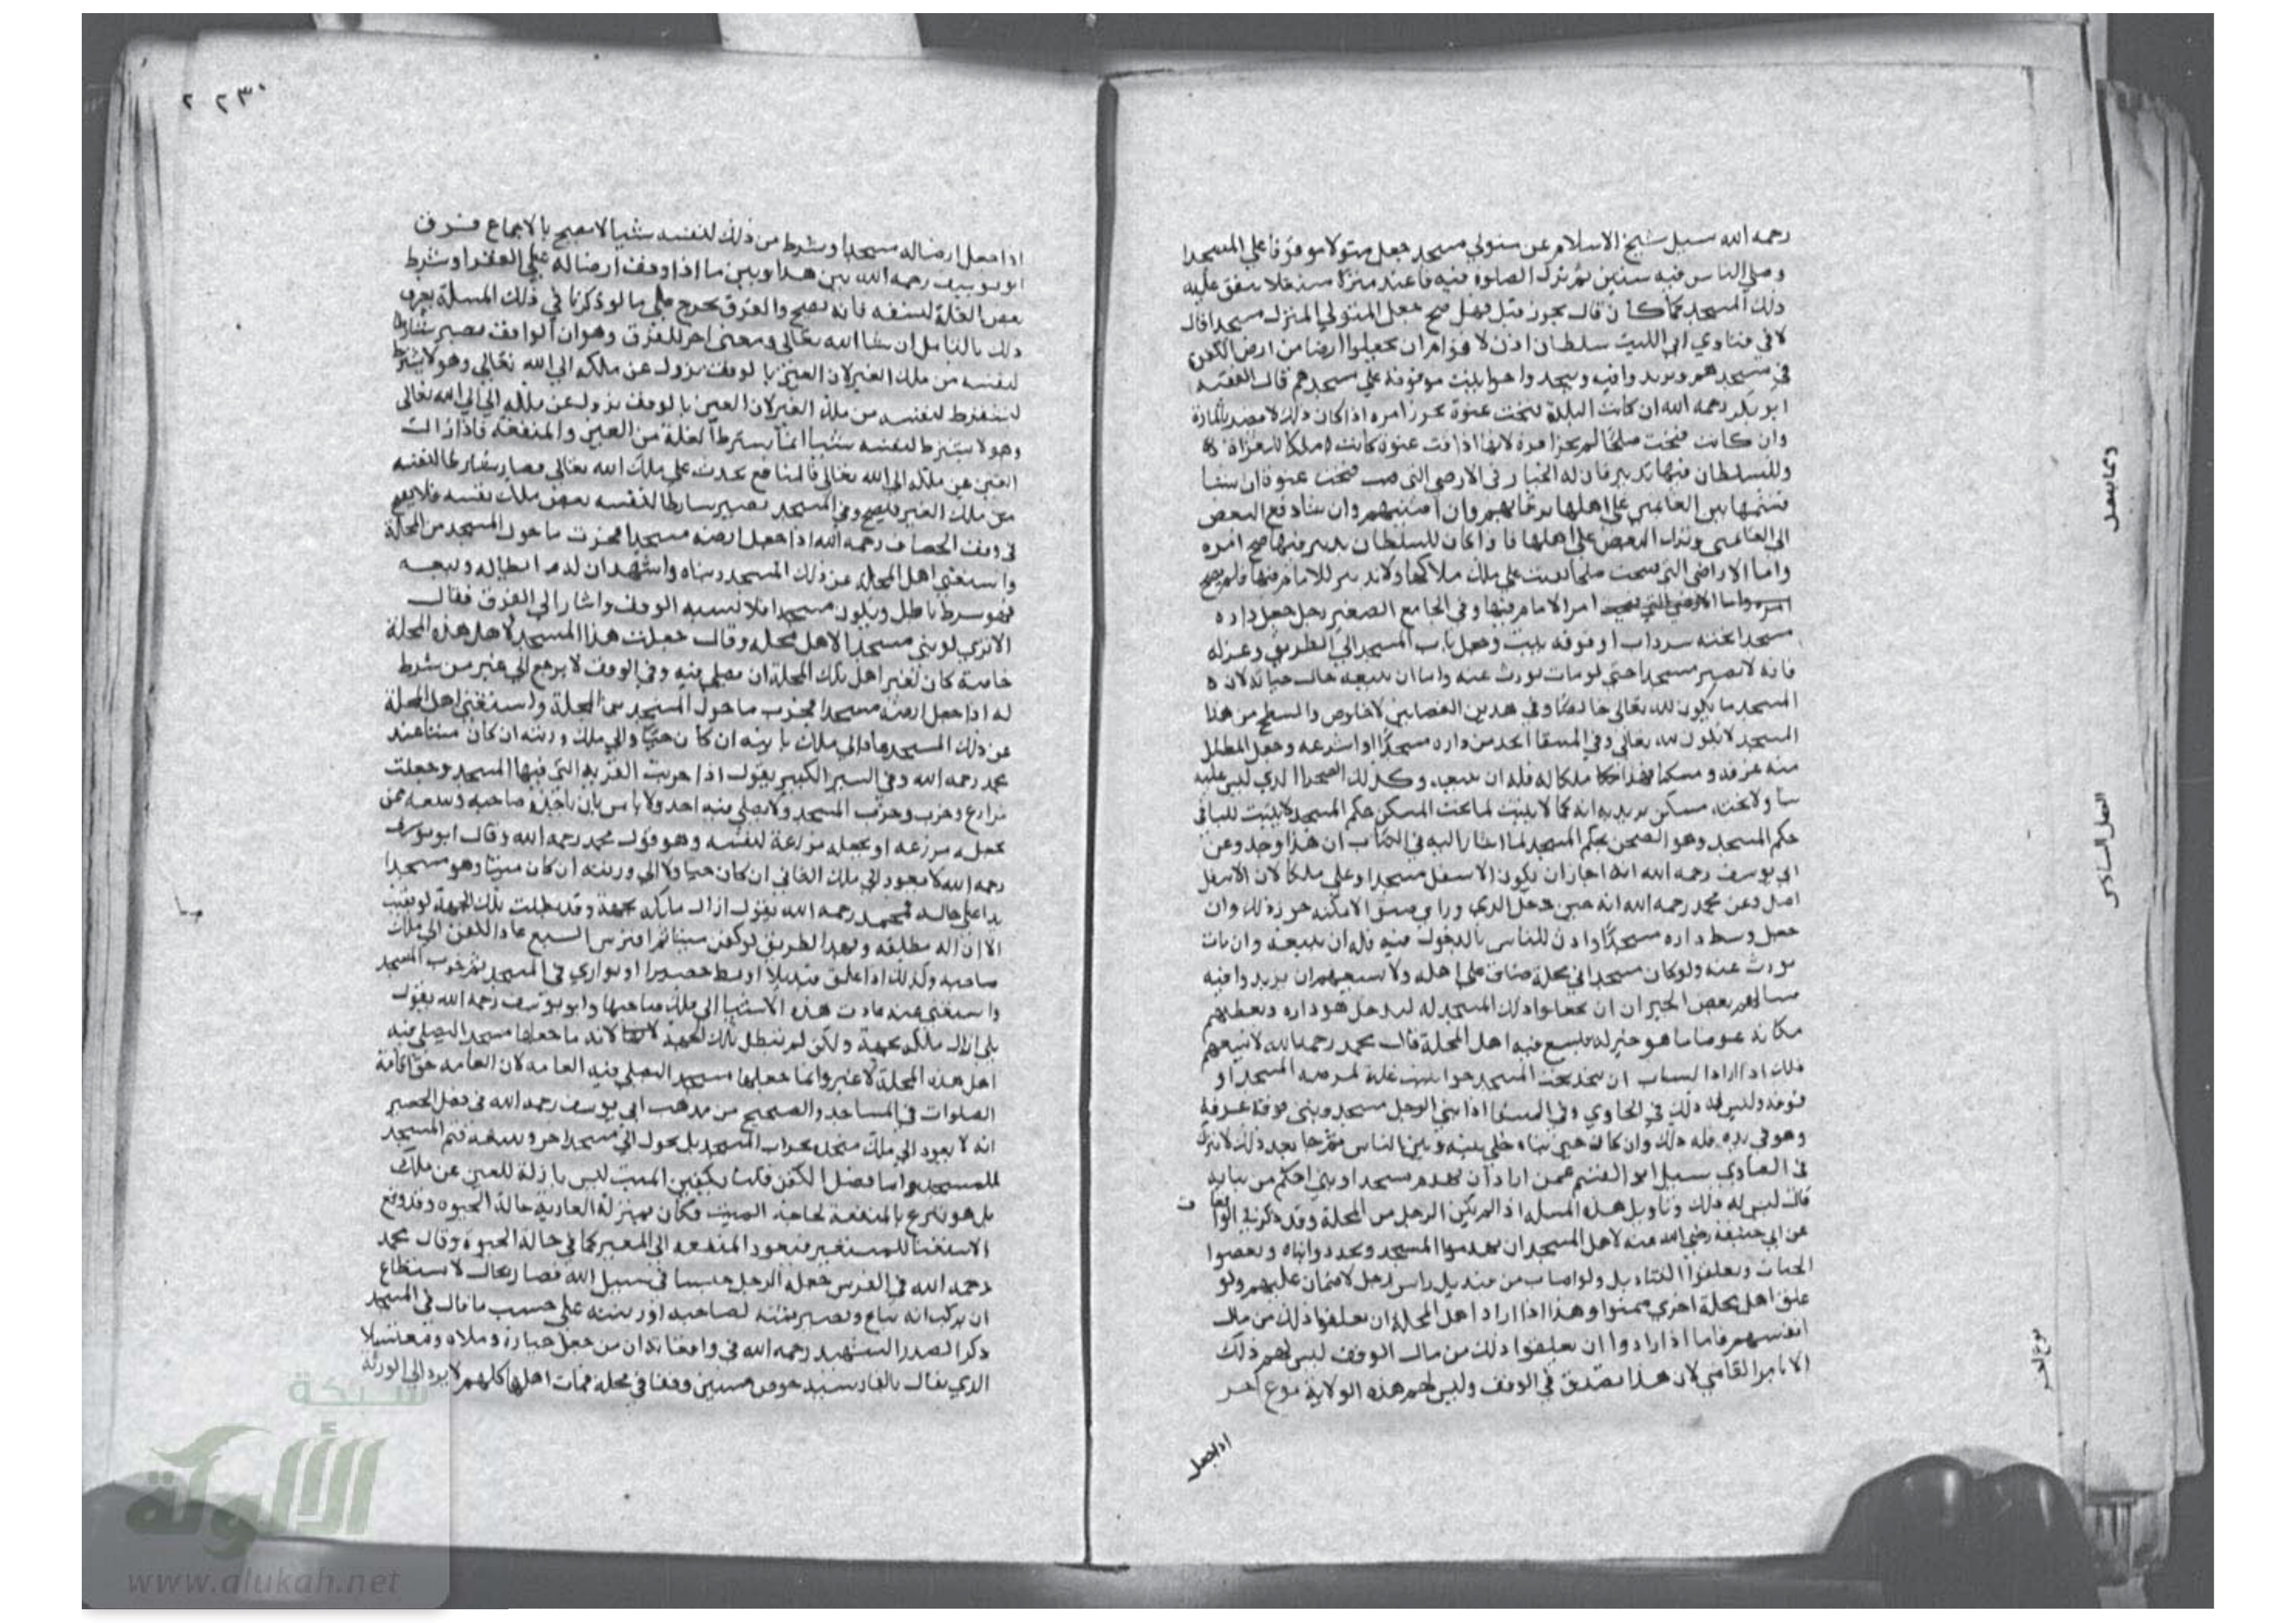 رحمه الله سيل شيخ الاسلام عن متولي مسجد جعل منزلا موقوفا على المسجد
وصلي الناس فيه سنين ثم ترك الصلوة فيه فاعيد منزلا
ذلك المسجد كما كان قال يجوز قيل فهل صح جعل المتولي المنزل مسجدا قال
لا في فتاوي ابي الليث سلطان اذن لاقوام ان يجعلوا ارضا من ارض
في مسجدهم ويزيدوا فيه حوانيت موقوفة علي مسجدهم قال الفقيه
ابو بكر رحمه الله ان كانت البلدة فتحت عنوة يجوز امره اذا كان ذلك لا يضر بالمارة
وان كانت فتحت صلحا لم يجز امره لانها اذا فتحت عنوة كانت ملكا للغزاة
وللسلطان فيها تدبير فان له الخيار في الارضي التي فتحت عنوة ان شا
قسمها بين الغانمين وان شا دفع البعض
الي الغانمين وترك البعض علي اهلها فاذا كان للسلطان تدبير فيها صح امره
واما الاراضي التي فتحت صلحا بقيت علي ملك ملاكها ولا تدبير للامام فيها فلم يصح
امر الامام فيها وفي الجامع الصغير رجل جعل داره
مسجدا تحته سرداب او فوقه بيت وجعل باب المسجد الي الطريق وعزله
فانه لا يصير مسجدا حتي لو مات يورث عنه واما ان يبيعه حال حياته لان
المسجد ما يكون لله تعالي خالصا وفي هذين الفصلين لا خلوص والسطح من هذا
المسجد لا يكون لله تعالي وفي المنتقا اتخذ من داره مسجدا او اشرعه وجعل المظلل
منه غرفة ومسكنا فله ان يبيعه وكذلك الصحرا الذي ليس عليه
مسكن يريد به انه كما لا يثبت لما تحت المسكن حكم المسجد لا يثبت للباقي
حكم المسجد وهو الصحن بحكم المسجد لما اشار اليه في الكتاب ان هذا وجد وعن
ابي يوسف رحمه الله انه اجاز ان يكون الاسفل مسجدا وعلي ملكا لان الاسفل
اصل وعن محمد رحمه الله انه حين دخل الري وراي ضيق الامكنه جوز ذلك وان
جعل وسط داره مسجدا واذن للناس بالدخول فيه فله ان يبيعه وان مات
يورث عنه ولو كان مسجدا في محلة ضاق علي اهله ولا يسعهم ان يزيدوا فيه
بعض الجيران ان يجعلوا ذلك المسجد له ليدخل هو داره ويعطيهم
مكانه عوضا ما هو خير له فيسع فيه اهل المحلة قال محمد رحمه الله لا يسعهم
ذلك اذا اراد ان يتخذ تحت المسجد حوانيت غلة لمرمة المسجد او
فوقه وليس له ذلك في الحاوي وفي المنتقا اذا بني الرجل مسجد وبني فوقه غرفة
وهو في يده فله ذلك وان كان حين بناه خلي بينه وبين الناس ثم جا بعد ذلك لا يترك
في الفتاوي سيل ابو القسم عمن اراد ان يهدم مسجدا ويبني احكم من بنايه
قال ليس له ذلك وتاويل هذه المسله اذا لم يكن الرجل من المحلة وقد ذكر في
عن ابي حنيفة رضي الله عنه لاهل المسجد ان يهدموا المسجد ويجددوا بناه
ويعلقوا القناديل ولو اصاب من منديل راس رجل لا ضمان عليهم ولو
علق اهل محلة اخري ضمنوا وهذا اذا اراد اهل المحلة ان يعلقوا ذلك من مال
انفسهم فاما اذا ارادوا ان يعلقوا ذلك من مال الوقف ليس لهم ذلك
الا بامر القاضي لان هذا تصرف في الوقف وليس لهم هذه الولاية نوع اخر
اذا جعل
الفصل السادس
٢٣٠ ٢
اذا جعل ارضا له مسجدا وشرط من ذلك لنفسه شيا لا يصح بالاجماع فرق
ابو يوسف رحمه الله بين هذا وبين ما اذا وقف ارضا له علي الفقرا وشرط
بعض الغلة لنفسه فانه يصح والفرق يخرج علي ما لو ذكرنا في ذلك المسلة يعرف
ذلك بالتامل ان شا الله تعالي ومعني اخر للفرق وهو ان الواقف يصير شارطا
لنفسه من ملك الغير لان العين بالوقف يزول عن ملكه الي الله تعالي وهو لا يشترط
لنفسه من ملك الغير لان العين بالوقف يزول عن ملكه الي الله تعالي
وهو لا يشترط لنفسه شيا انما يشترط الغلة من العين والمنفعة فاذا زالت
العين عن ملكه الي الله تعالي فالمنافع يحدث علي ملك الله تعالي فصار شارطا لنفسه
من ملك الغير فيصح وفي المسجد يصير شارطا لنفسه بعض ملك نفسه فلا يصح
في وقف الخصاف رحمه الله اذا جعل ارضه مسجدا فخرب ما حول المسجد من المحلة
واستغني اهل المحلة عن ذلك المسجد وبناه واشهد ان له ابطاله وبيعه
فهو شرط باطل ويكون مسجدا فلا يشبه الوقف واشار الي الفرق فقال
الا تري لو بني مسجدا لاهل محله وقال جعلت هذا المسجد لاهل هذه المحلة
خاصة كان لغير اهل تلك المحلة ان يصلي فيه وفي الوقف لا يرجع الي غير من شرط
له اذا جعل ارضه مسجدا فخرب ما حول المسجد من المحلة واستغني اهل المحلة
عن ذلك المسجد عاد الي ملك بانيه ان كان حيا والي ملك ورثته ان كان ميتا عند
محمد رحمه الله وفي السير الكبير يقول اذا خربت القرية التي فيها المسجد وجعلت
مزارع وخرب المسجد ولا يصلي فيه احد ولا باس بان ياخذه صاحبه ويبيعه ممن
يجعله مزرعة او يجعله مزرعة لنفسه وهو قول محمد رحمه الله وقال ابو يوسف
رحمه الله لا يعود الي ملك الباني ان كان حيا ولا الي ورثته ان كان ميتا وهو مسجدا
علي حاله فمحمد رحمه الله يقول ازال ملكه بجهة وقد بطلت تلك الجهة
الطريق لو كفن ميتا ثم افترس السبع عاد الكفن الي ملك
صاحبه وكذلك اذا علق قنديلا او بسط حصيرا او بواري في المسجد ثم خرب المسجد
واستغني عنه عادت هذه الاشيا الي ملك صاحبها وابو يوسف رحمه الله يقول
بلي ازال ملكه بجهة ولكن لم تبطل تلك الجهة لانه ما جعلها مسجد ليصلي فيه
اهل هذه المحلة لا غير وانما جعلها مسجد ليصلي فيه العامه لان العامه حق اقامة
الصلوات في المساجد والصحيح من مذهب ابي يوسف رحمه الله في فصل الحصير
انه لا يعود الي ملك متخذه بخراب المسجد بل يحول الي مسجد اخر او يبيعه قيم المسجد
للمسجد واما فصل الكفن قلنا تكفين الميت ليس بازالة للعين عن ملكه
بل هو تبرع بالمنفعة لحاجة الميت فكان بمنزلة العارية حالة الحيوه وقد وقع
الاستغنا للمستعير فتعود المنفعه الي المعير كما في حالة الحيوة وقال محمد
رحمه الله في الفرس جعله الرجل حبيسا في سبيل الله فصار بحال لا يستطاع
ان يركب انه يباع ويصير ثمنه لصاحبه او ورثته علي حسب ما قال في المسجد
ذكر الصدر الشهيد رحمه الله في واقعاته ان من جعل جنازة وملاه ومغتسلا
الذي يقال بالفارسية حوض مسين وقفا في محلة فمات اهلها كلهم لا يرد الي الورثة
شبكة
الألوكة
www.alukah.net